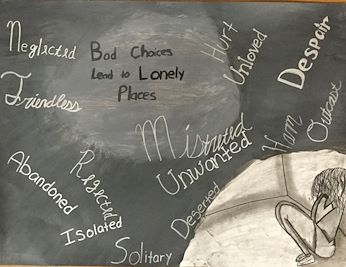 Neglected
Bad Choices
Lead to Lonely
Places
Hurt
Unloved
Despair
Friendless
Mistrusted
Unwanted
Harm
Outcast
Abandoned
Rejected
Isolated
Deserted
Solitary